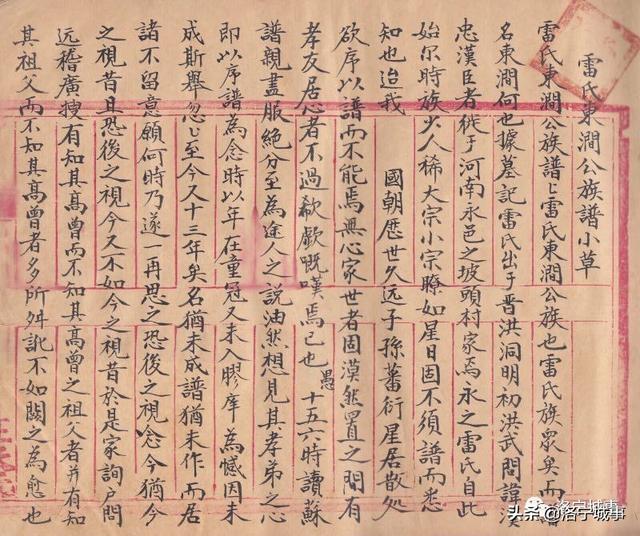 雷氏東澗公族譜小草
雷氏東澗公族譜譜雷氏東澗公族也雷氏族眾矣而
名東澗何也據墓記雷氏出于晋洪洞明初洪武間諱漢
忠漢臣者徙于河南永邑之坡頭村家焉永之雷氏自此
始尔時族少人稀大宗小宗瞭如星日固不須譜而悉
知也迨我 國朝歷世久远子孫蕃衍星居散処
欲序以譜而不能焉無心家世者固漠然置之間有
孝友居心者不過欷歔嘅嘆焉已也愚十五六時讀蘇
譜親盡服絕分至為途人之說油然想見其孝弟之心
即以序譜為念時以年在童冠又未入膠庠為憾因未
成斯舉忽忽至今又十三年矣名猶未成譜猶未作而居
諸不留意願何時乃遂一再思之恐後之視念今猶今
之視昔且恐後之視今又不如今之視昔於是家詢戶問
远稽廣搜有知其高曾而不知其高曾之祖父者并有知
其祖父而不知其高曾者多所舛訛不如闕之為愈也
头条@洛宁城事
洛宁城事